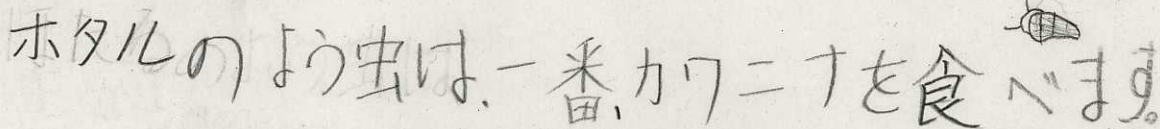 ホタルのよう虫は、一番、カワニナを食べます。